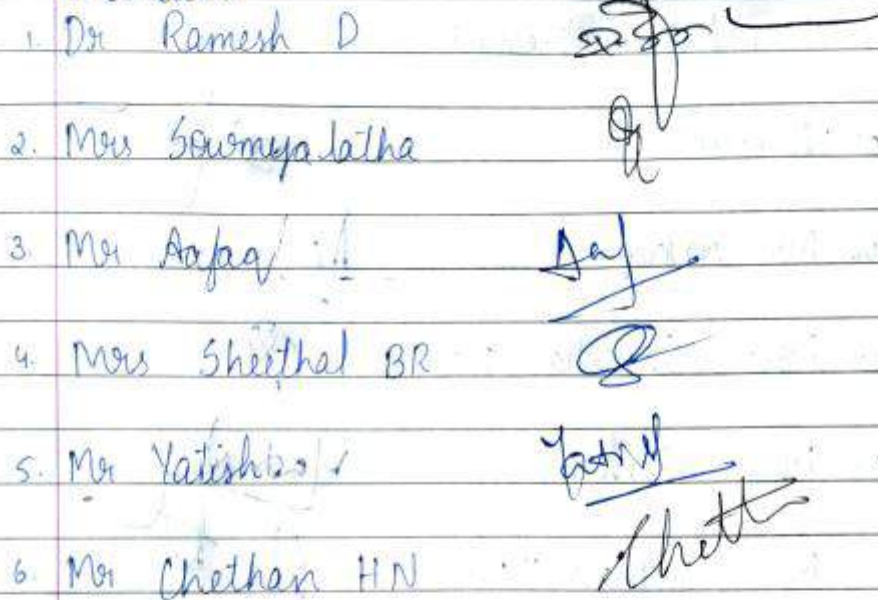 1. Dr Ramesh D
2. Mrs Sowmya latha
3. Mr Aafaq Aaf
4. Mrs Sheethal BR
5. Mr Yatish
6. Mr Chethan HN Cheth